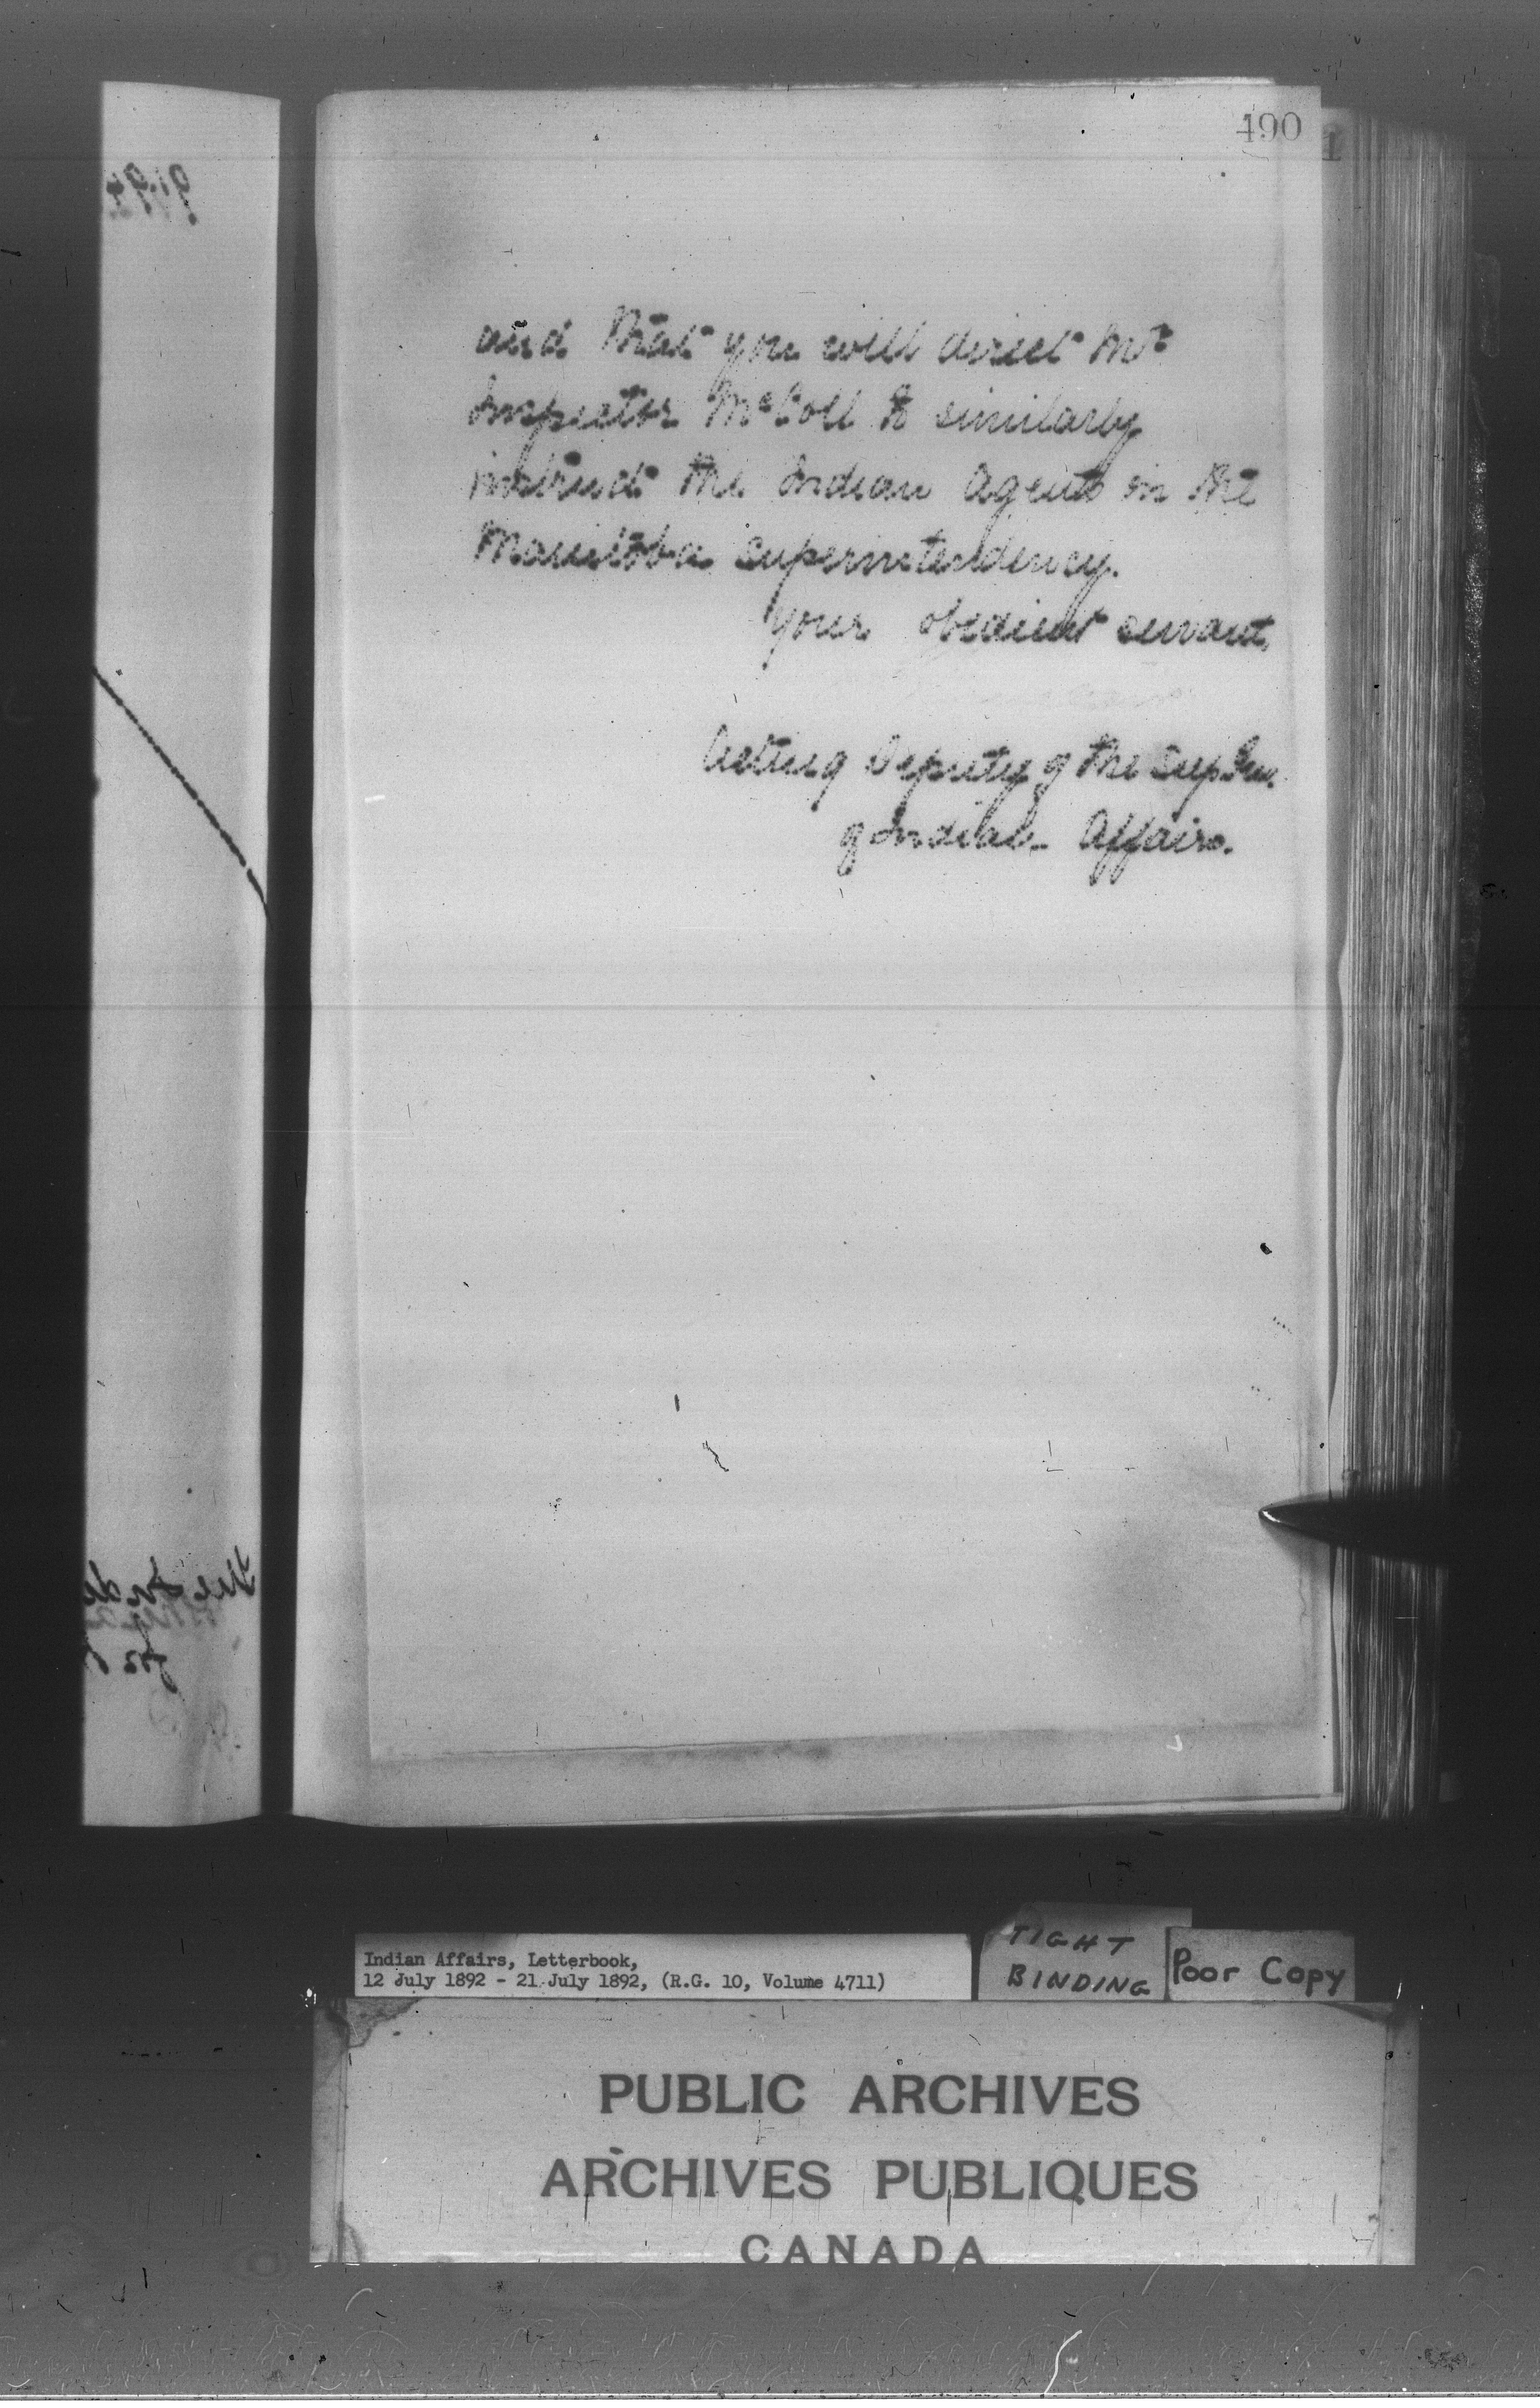 490
and that you will direct Mr
Inspector McColl to similarly
instruct the Indian Agents in the
Manitoba Superintendency.
Your obedient servant,
Acting Deputy of the Sup. Gen.
of Indian Affairs.
Indian Affairs, Letterbook,
12 July 1892 - 21 July 1892, (R.G. 10, Volume 4711)
TIGHT
BINDING
Poor Copy
PUBLIC ARCHIVES
ARCHIVES PUBLIQUES
CANADA